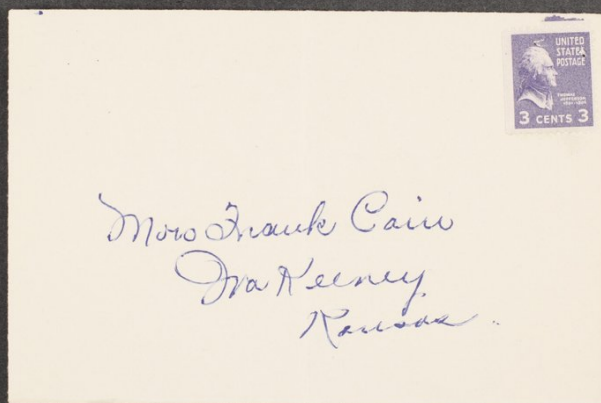 UNITED
STATES
POSTAGE
THOMAS
JEFFERSON
3 CENTS 3
Mrs Frank Cain
Wa Keeney
Kansas.